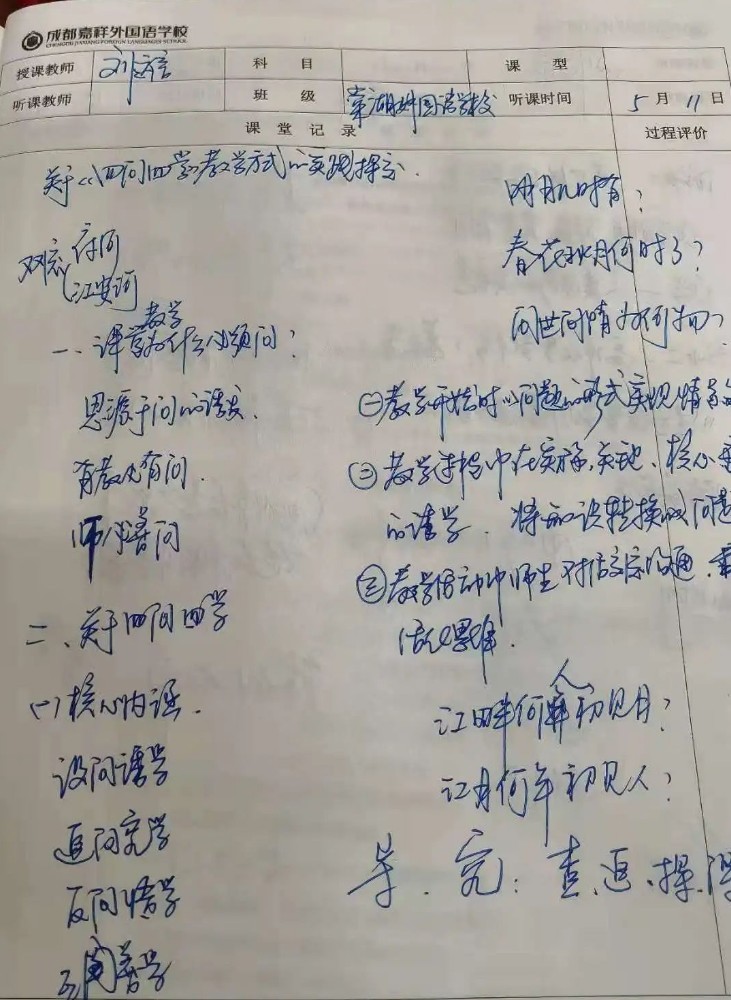 成都嘉祥外国语学校
CHENGDU JIAXIANG FOREIGN LANGUAGES SCHOOL
授课教师 刘 科 目 课 型
听课教师 班 级 棠湖外国语学校 听课时间 5 月 11 日
课 堂 记 录 过程评价
关于《四问四学》教学方式的实践探索.
双流 府河
江安河
一、课堂教学为什么必须问?
思源于问的诱发.
有教必有问.
师必善问
二、关于四问四学
(一)核心内涵.
设问诱学
追问究学
反问悟学
互问善学
明月几时有?
春花秋月何时了?
问世间情为何物?
㊀教学开始时以问题的形式实现情
㊁教学过程中在实施、实现、核心
的诱学. 将知识转换成问题
㊂教学活动中师生对话交流沟通,
优化思维.
江畔何人初见月?
江月何年初见人?
导. 究: 查、追、探、